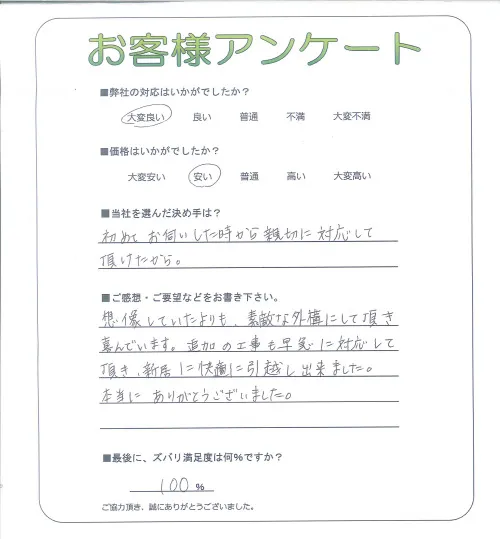 お客様アンケート
■弊社の対応はいかがでしたか？
大変良い 良い 普通 不満 大変不満
■価格はいかがでしたか？
大変安い 安い 普通 高い 大変高い
■当社を選んだ決め手は？
初めて お伺いした時から 親切に 対応して
頂けたから。
■ご感想・ご要望などをお書き下さい。
想像していたよりも、素敵な外構にして頂き
喜んでいます。追加の工事も早急に対応して
頂き、新居に快適に引越し出来ました。
本当に ありがとうございました。
■最後に、ズバリ満足度は何％ですか？
100 ％
ご協力頂き、誠にありがとうございました。